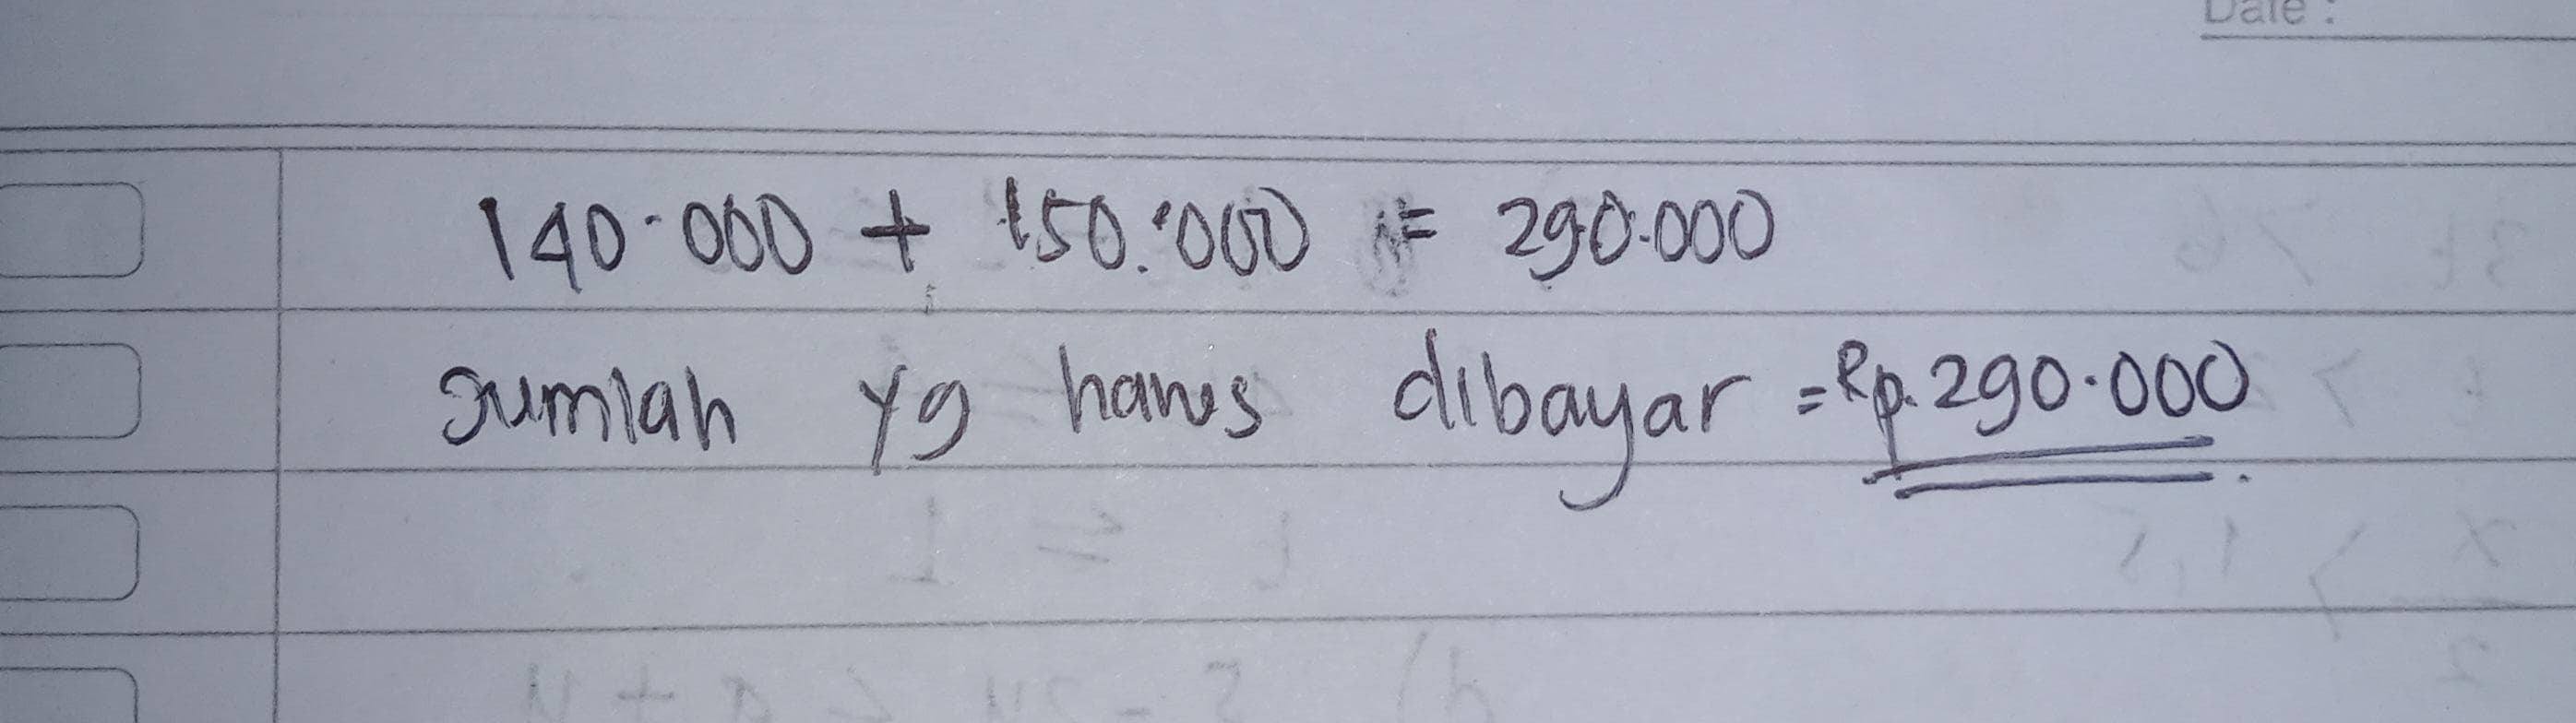 Date :
140.000 + 150.000 = 290.000
Jumlah yg harus dibayar = Rp. 290.000